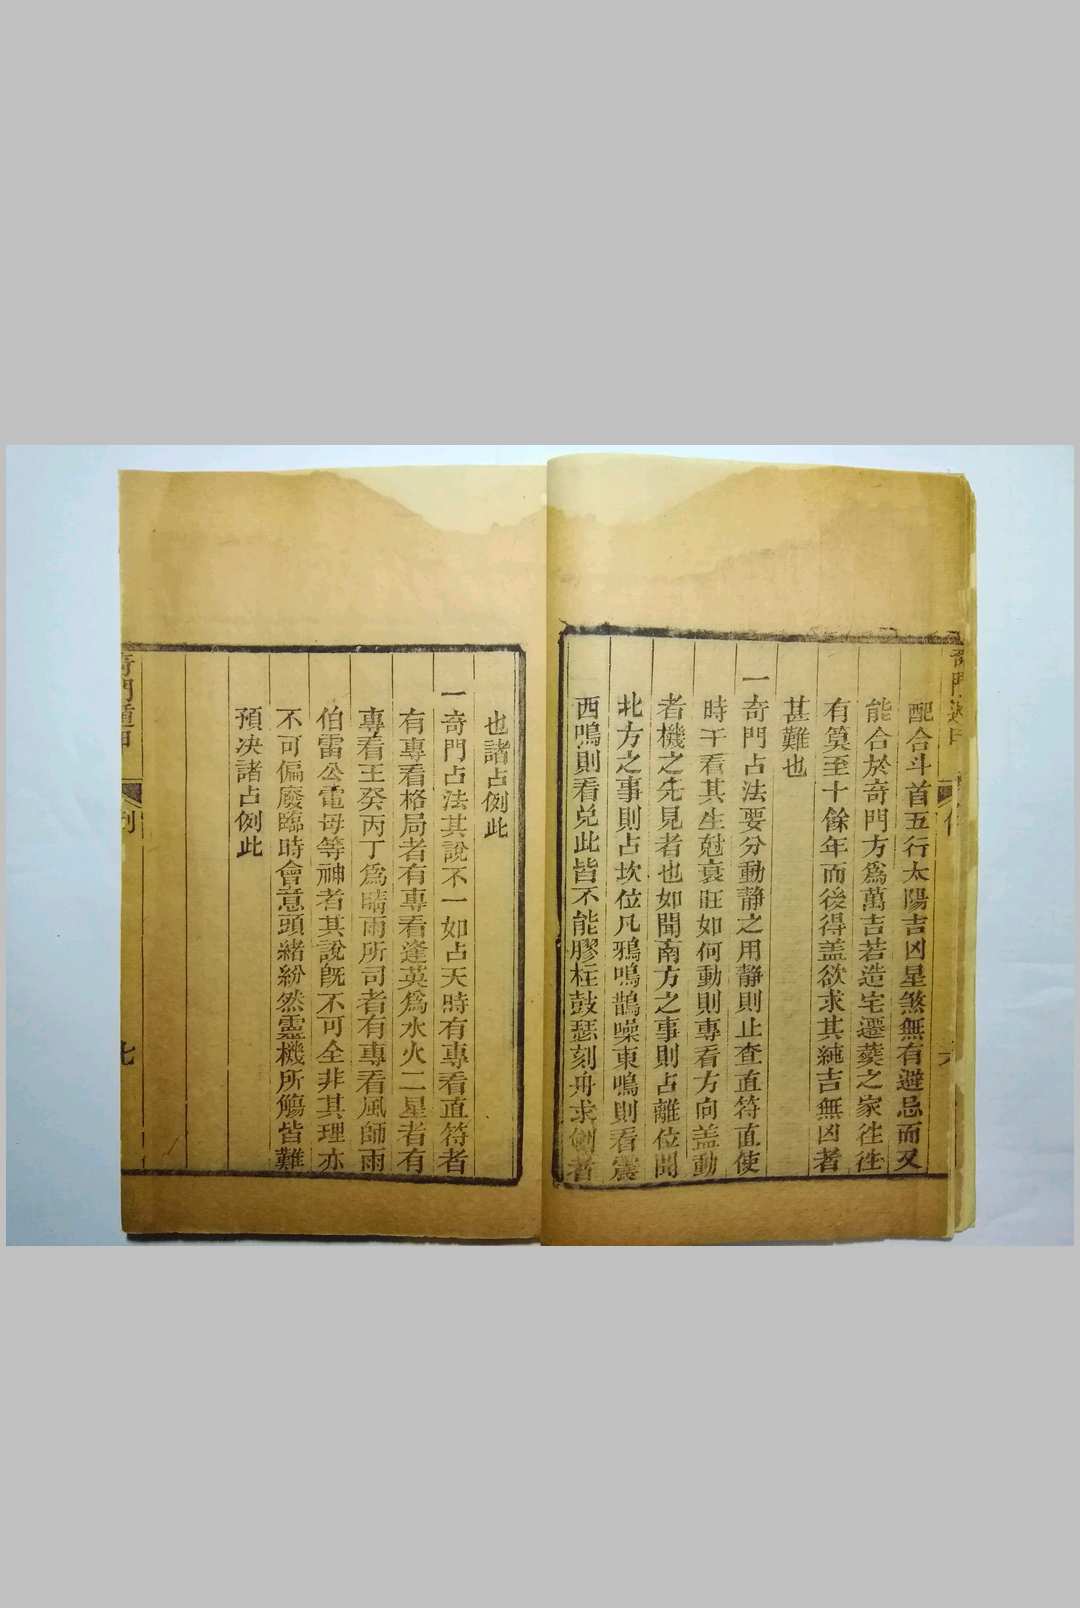 配合斗首五行太陽吉凶星煞無有避忌而又
能合於奇門方爲萬吉若造宅遷葬之家往往
有筭至十餘年而後得盖欲求其純吉無凶者
甚難也
一奇門占法要分動靜之用靜則止查直符直使
時干看其生尅衰旺如何動則專看方向盖動
者機之先見者也如聞南方之事則占離位聞
北方之事則占坎位凡鴉鳴鵲噪東鳴則看震
西鳴則看兌此皆不能膠柱鼓瑟刻舟求劍者
也諸占例此
一奇門占法其說不一如占天時有專看直符者
有專看格局者有專看逢英爲水火二星者有
專看壬癸丙丁爲晴雨所司者有專看風師雨
伯雷公電母等神者其說旣不可全非其理亦
不可偏廢臨時會意頭緒紛然靈機所觸皆難
預決諸占例此
奇門遁甲
例
七